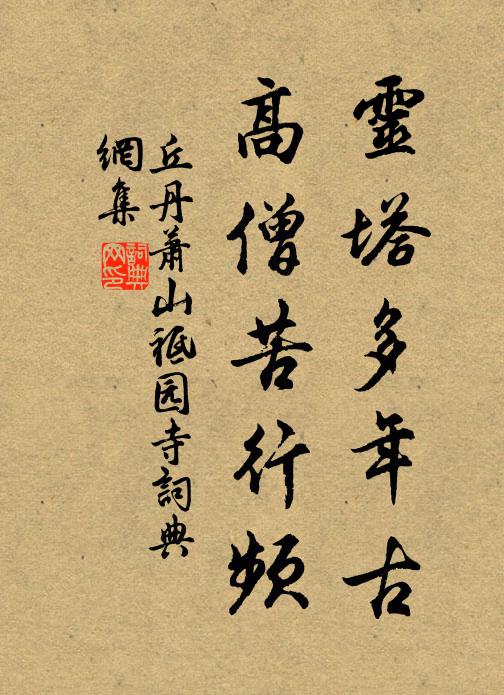 靈塔多年古
高僧苦行頻
丘丹蕭山祗园寺詞典
網集
詞典
网印